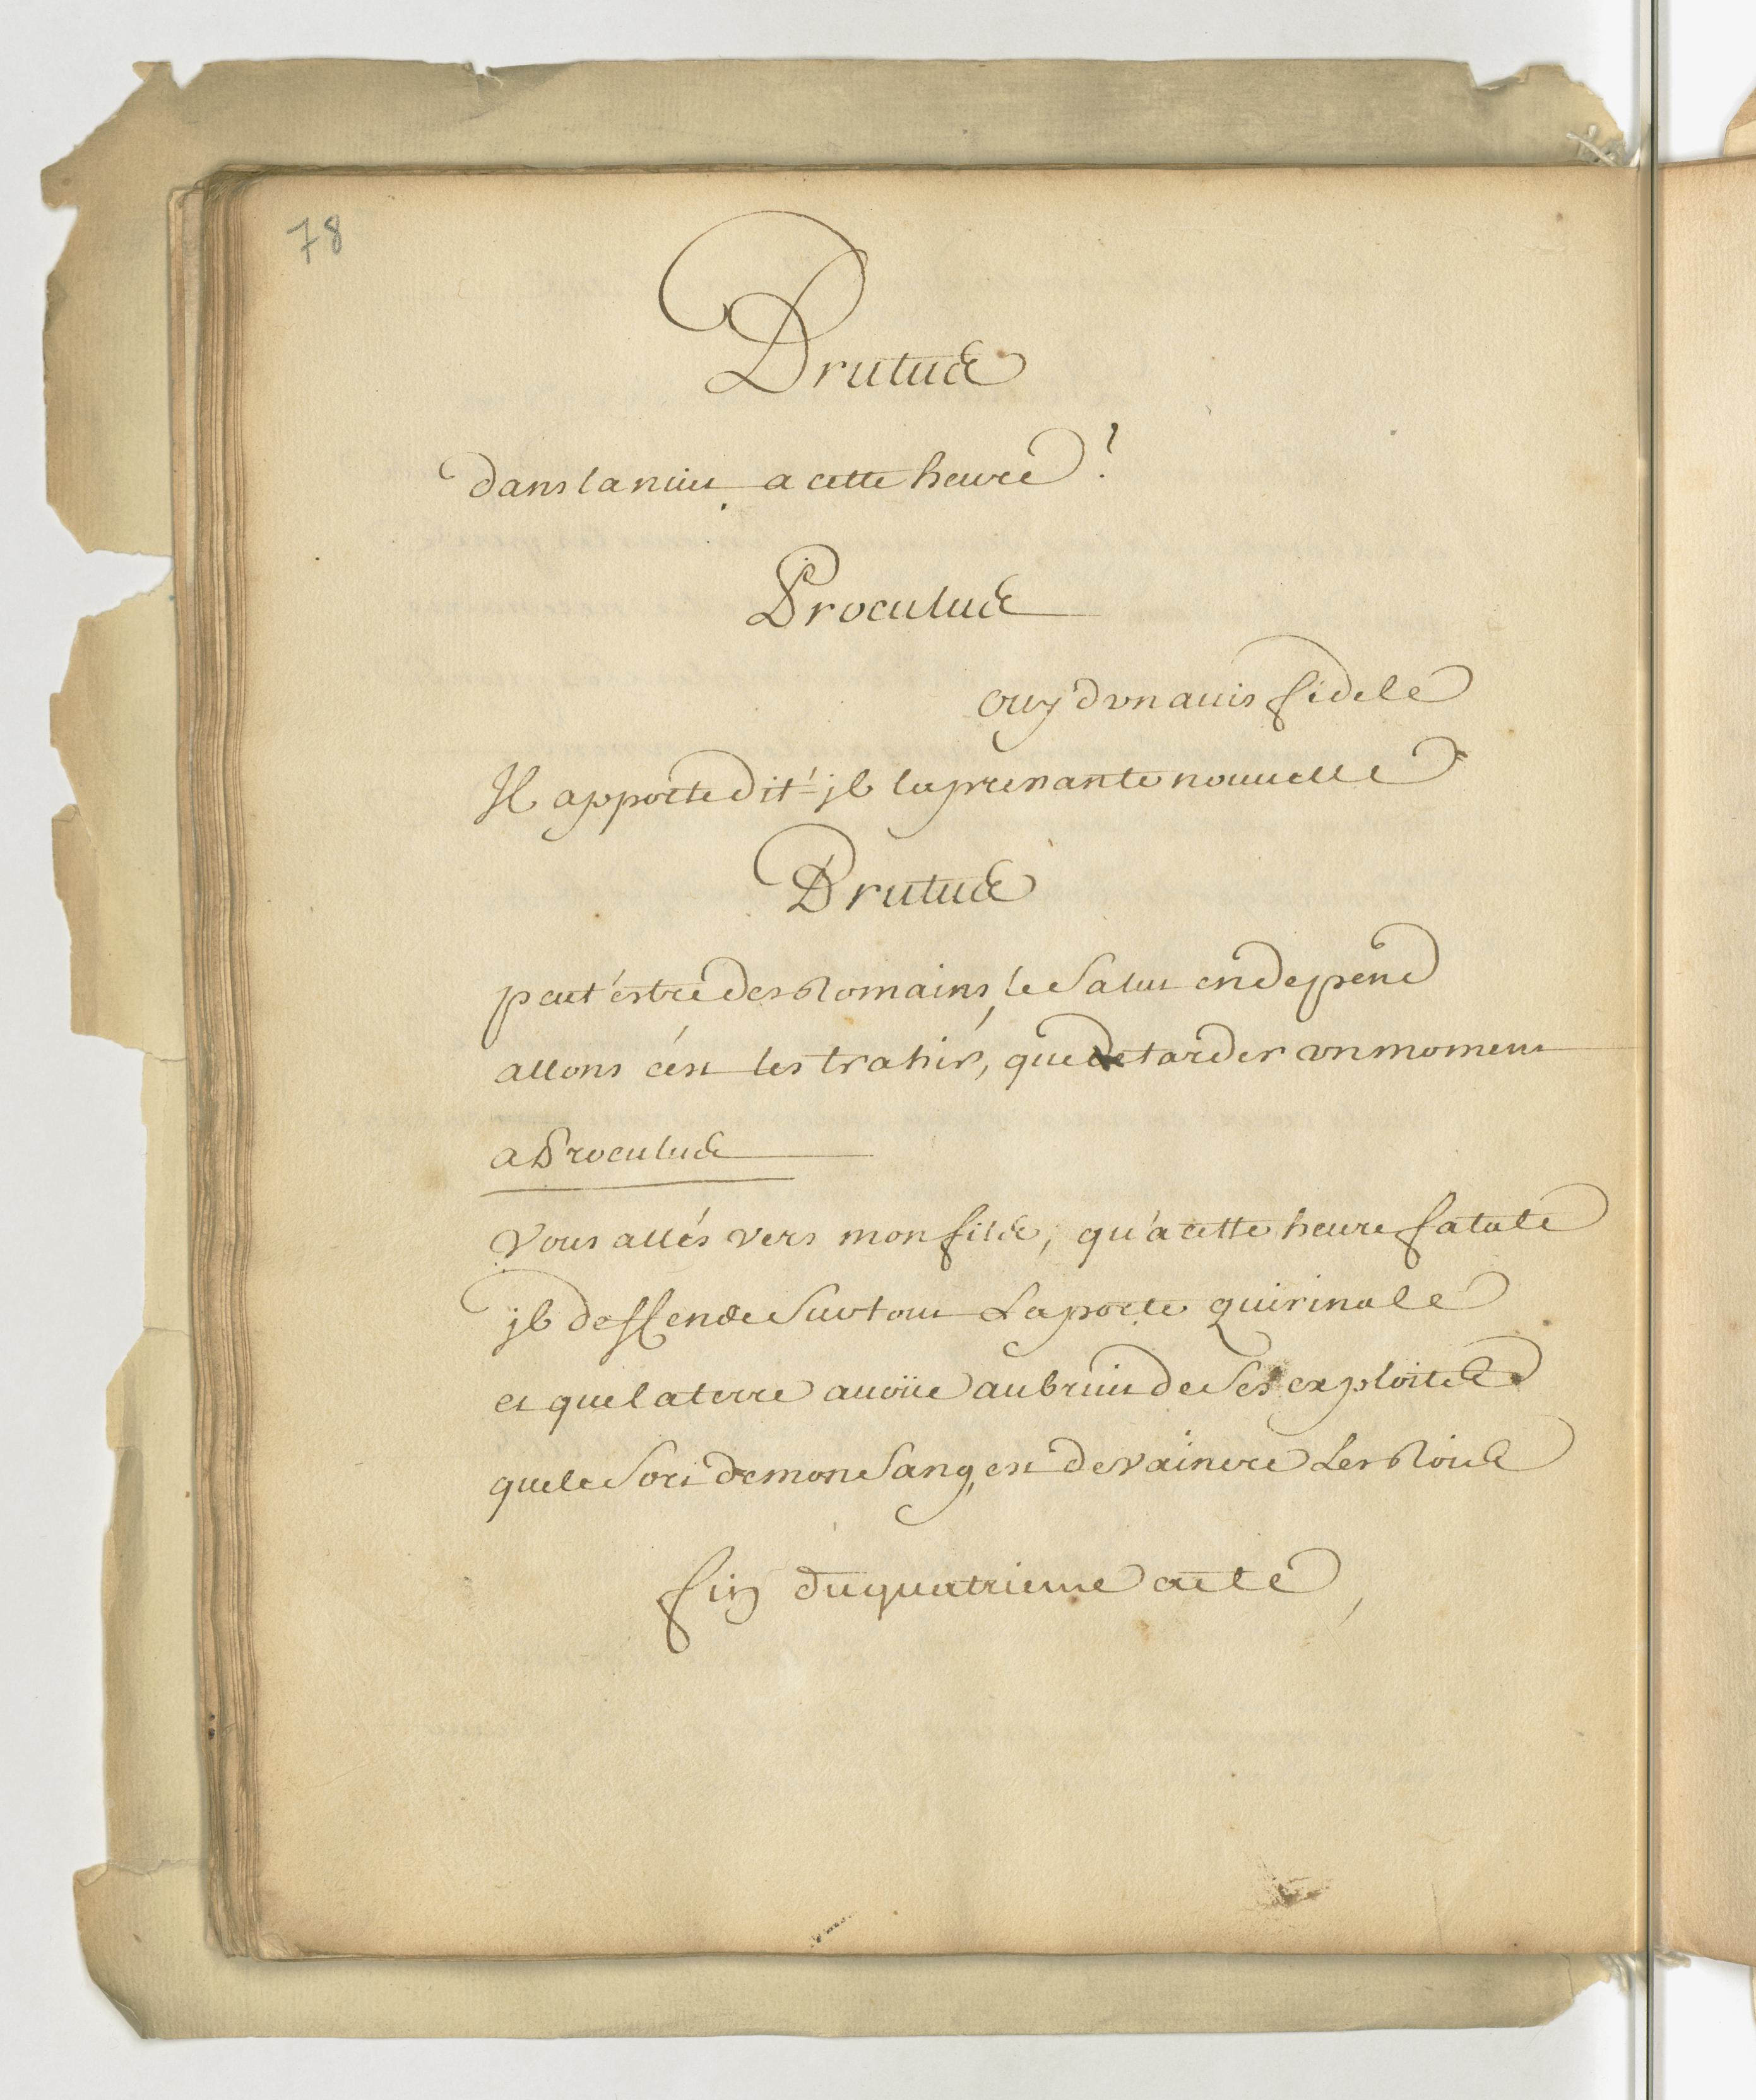 78
Brutus
dans la nuit a cette heure?
Proculus
ouy d'vn auis fidele
Il apporte dit-jl la presante nouuelle
Brutus
peut éstre des Romains, le salut en depend
allons cést les trahir, que de tarder vn moment
a Proculus
Vous allés vers mon fils, qu'a cette heure fatale
jl deffende surtout La porte quirinale
et que la terre auoüe au bruit de ses exploits
que le sort de mon sang, est de vaincre Les Rois
fin du quatrieme acte,